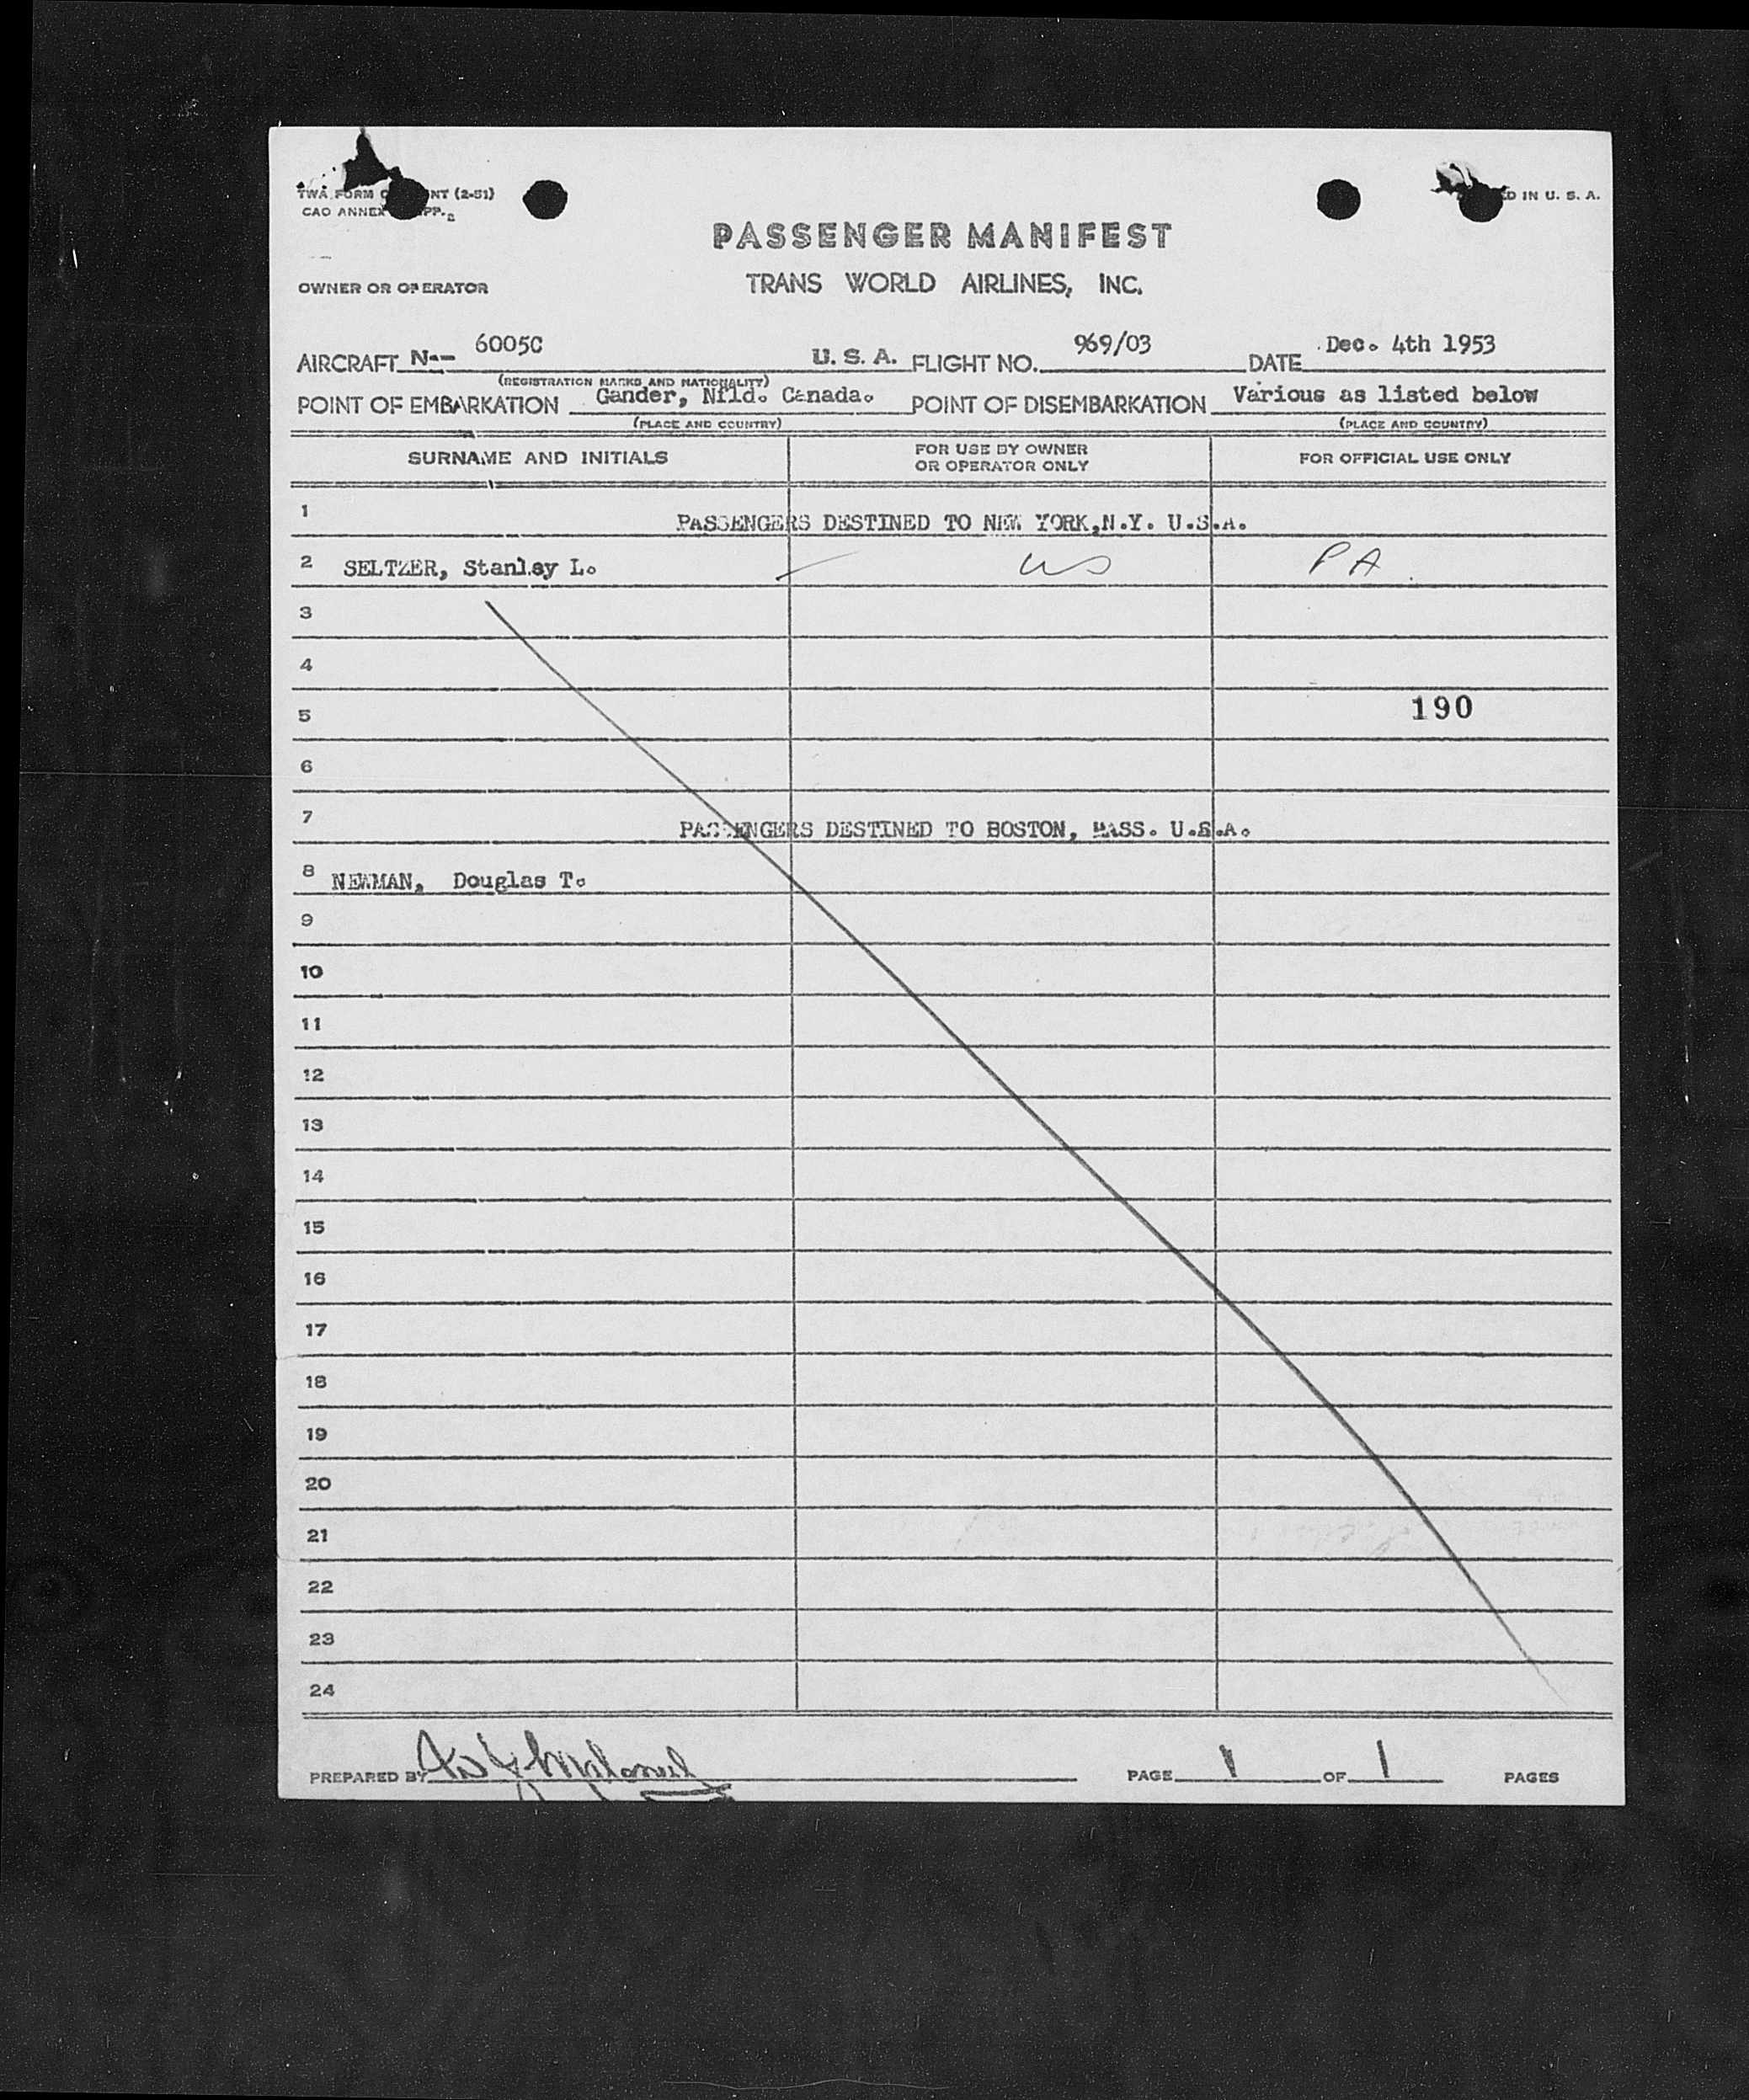 TWA FORM NT (2-51)
CAO ANNEX PP.
D IN U. S. A.
PASSENGER MANIFEST
OWNER OR OPERATOR TRANS WORLD AIRLINES, INC.
AIRCRAFT N-- 6005C U. S. A. FLIGHT NO. 969/03 DATE Dec. 4th 1953
(REGISTRATION MARKS AND NATIONALITY)
POINT OF EMBARKATION Gander, Nfld. Canada. POINT OF DISEMBARKATION Various as listed below
(PLACE AND COUNTRY) (PLACE AND COUNTRY)
SURNAME AND INITIALS FOR USE BY OWNER OR OPERATOR ONLY FOR OFFICIAL USE ONLY
1 PASSENGERS DESTINED TO NEW YORK,N.Y. U.S.A.
2 SELTZER, Stanley L. US PA
3
4
5 190
6
7 PASSENGERS DESTINED TO BOSTON, MASS. U.S.A.
8 NEWMAN, Douglas T.
9
10
11
12
13
14
15
16
17
18
19
20
21
22
23
24
PREPARED BY PAGE 1 OF 1 PAGES